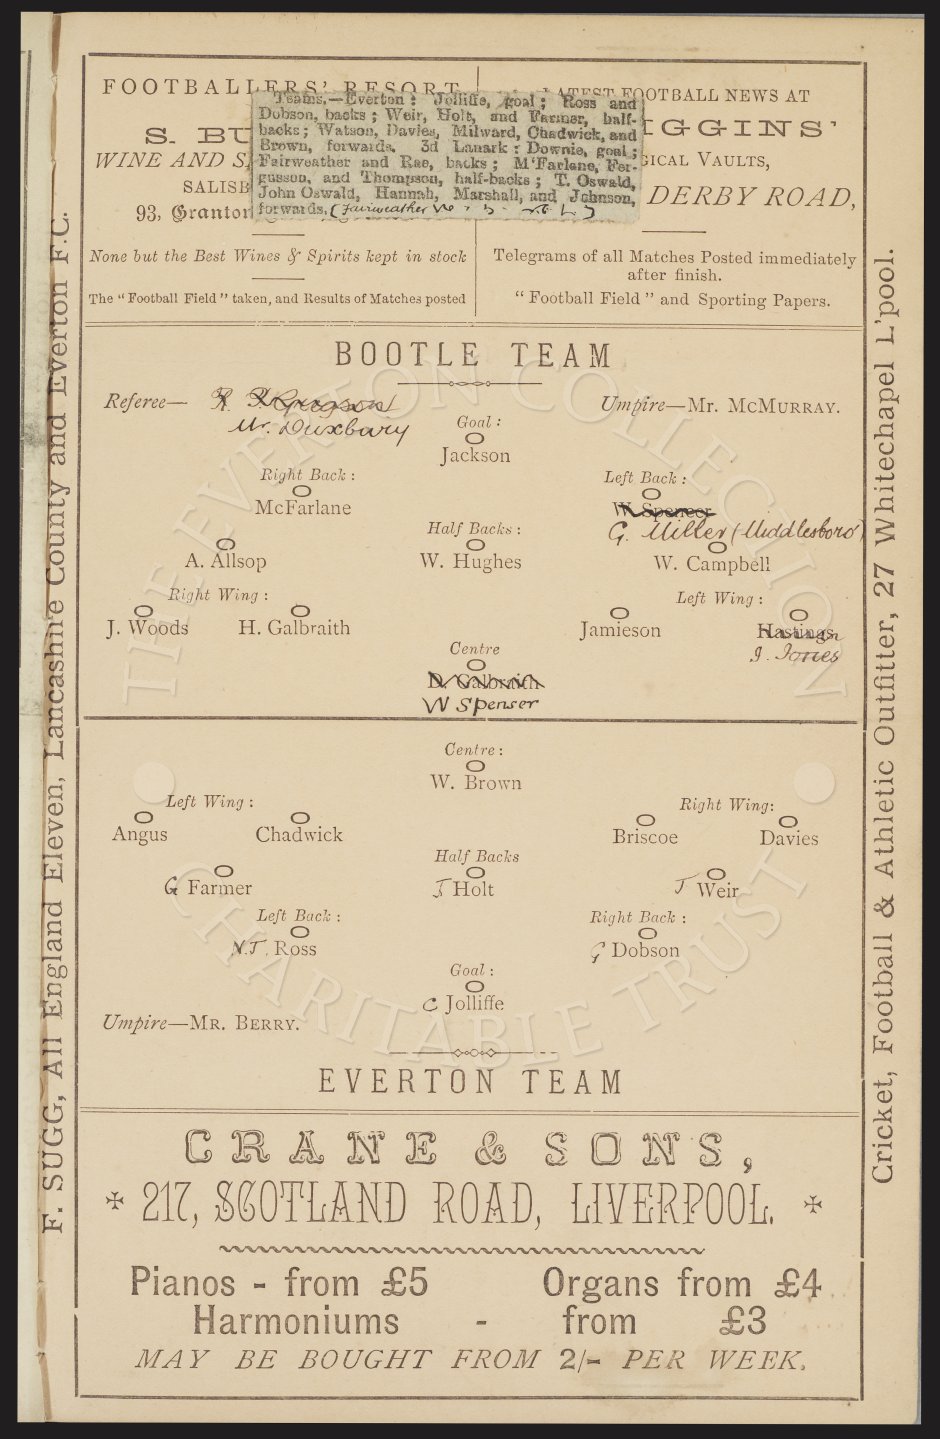 FOOTBALLERS' RESORT
S. BU
WINE AND S
SALISB
93, Granton
None but the Best Wines & Spirits kept in stock
The "Football Field" taken, and Results of Matches posted
Teams.—Everton: Jolliffe, goal; Ross and
Dobson, backs; Weir, Holt, and Farmer, half-
backs; Watson, Davies, Milward, Chadwick, and
Brown, forwards. 3d Lanark: Downie, goal;
Fairweather and Rae, backs; M'Farlane, Fer-
gusson, and Thompson, half-backs; T. Oswald,
John Oswald, Hannah, Marshall, and Johnson,
forwards. (Fairweather
LATEST FOOTBALL NEWS AT
IGGINS'
GICAL VAULTS,
DERBY ROAD,
Telegrams of all Matches Posted immediately
after finish.
"Football Field" and Sporting Papers.
BOOTLE TEAM
Referee—
Gregson
Mr. Duxbury
Umpire—MR. MCMURRAY.
Goal:
Jackson
Right Back:
McFarlane
Left Back:
W. Spencer
G. Miller (Middlesboro)
Half Backs:
A. Allsop
W. Hughes
W. Campbell
Right Wing:
Left Wing:
J. Woods
H. Galbraith
Jamieson
Hastings
J. Jones
Centre
D. Galbraith
W Spenser
Centre:
W. Brown
Left Wing:
Right Wing:
Angus
Chadwick
Briscoe
Davies
Half Backs
G Farmer
J Holt
J Weir
Left Back:
Right Back:
N.J. Ross
G Dobson
Goal:
C Jolliffe
Umpire—MR. BERRY.
EVERTON TEAM
CRANE & SONS,
217, SCOTLAND ROAD, LIVERPOOL.
Pianos - from £5 Organs from £4
Harmoniums - from £3
MAY BE BOUGHT FROM 2/- PER WEEK.
F. SUGG, All England Eleven, Lancashire County and Everton F.C.
Cricket, Football & Athletic Outfitter, 27 Whitechapel L'pool.
THE EVERTON COLLECTION
CHARITABLE TRUST